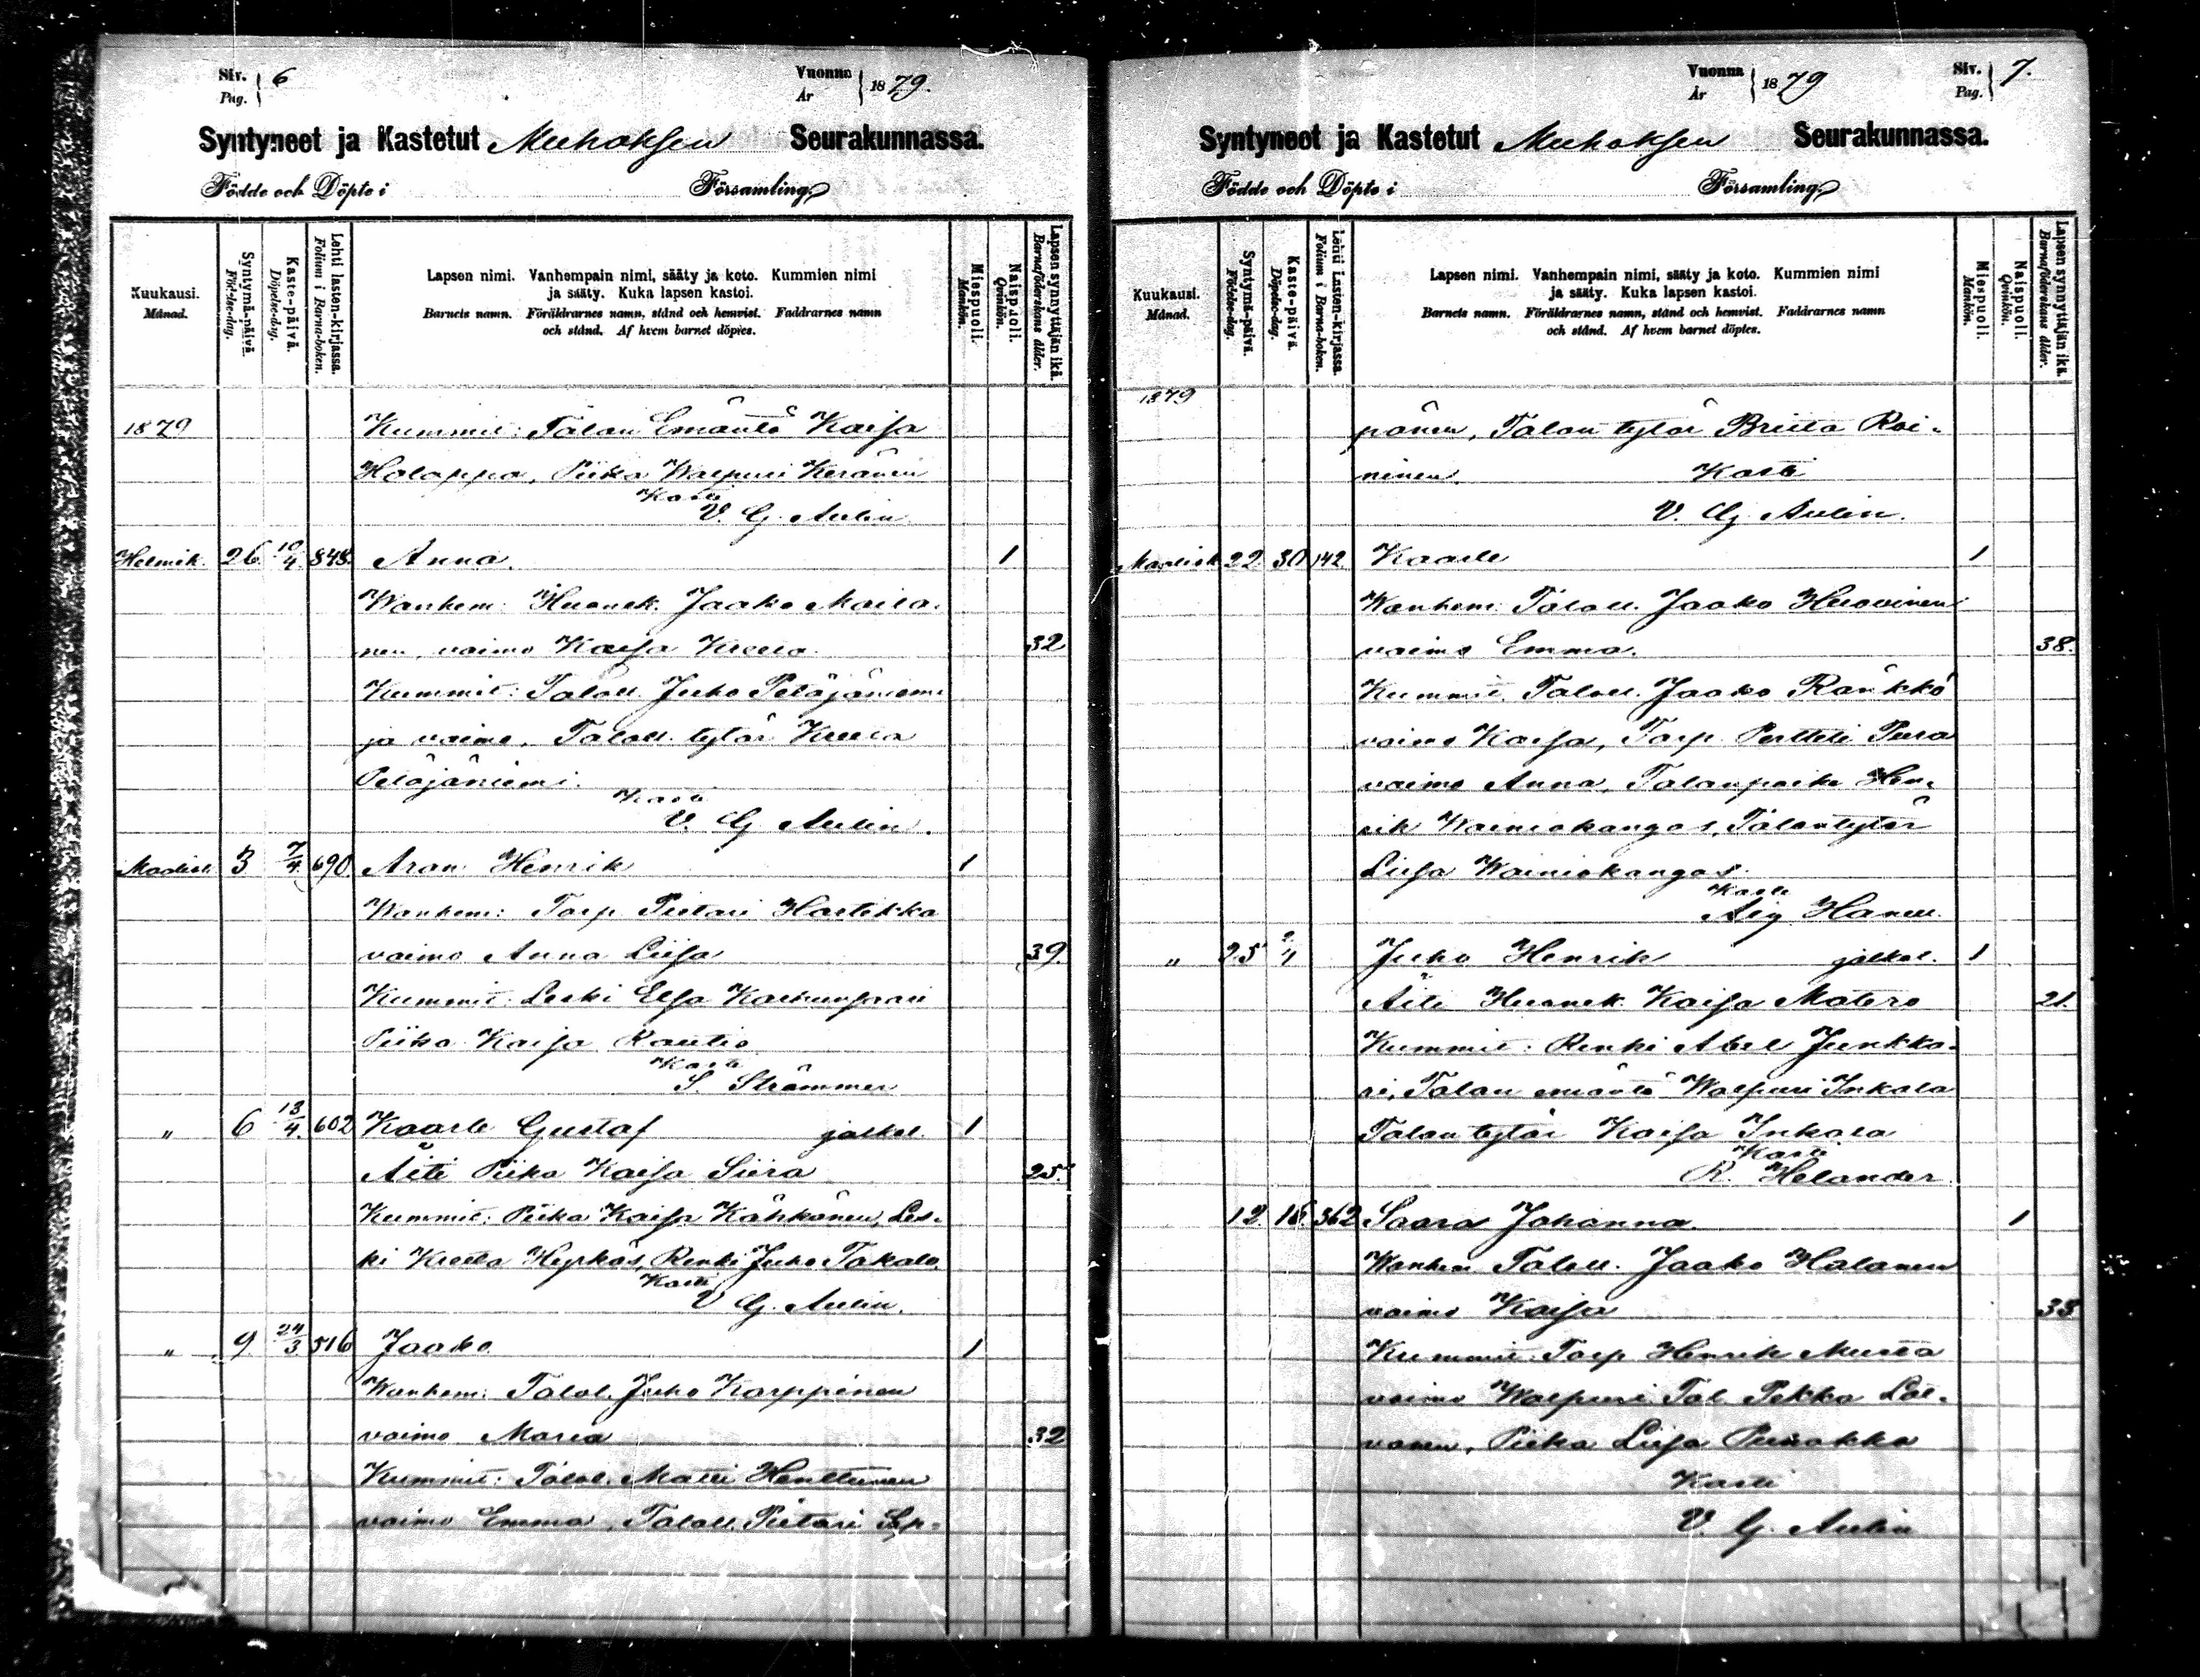 Siv. Pag. 6
Vuonna År 1879.
Syntyneet ja Kastetut Muhoksen Seurakunnassa.
Födde och Döpte i Församling.
Kuukausi. Månad.
Syntymä-päivä Födelse-dag.
Kaste-päivä. Döpelse-dag.
Lehti lasten-kirjassa. Folium i Barna-boken.
Lapsen nimi. Vanhempain nimi, sääty ja koto. Kummien nimi
ja sääty. Kuka lapsen kastoi.
Barnets namn. Föräldrarnes namn, stånd och hemvist. Faddrarnes namn
och stånd. Af hvem barnet döptes.
Miespuoli. Mankön.
Naispuoli. Qvinkön.
Lapsen synnyttäjän ikä. Barnaföderskans ålder.
1879 Kummit: Talan Emäntä Kaisa
Holappa, Piika Walpuri Keränen
Kasti
V. G. Aulin
Helmik. 26 10/4 848. Anna. 1
Wanhem: Huonek. Jaako Maila-
nen, vaimo Kaisa Kreeta 32
Kummit: Taloll. Juho Petäjäniemi
ja vaimo, Taloll. tytär Kreeta
Petäjäniemi.
Kasti
V. G. Aulin.
Maalisk. 3 7/4. 690. Aron Henrik 1
Wanhem: Torp. Pietari Hartikka
vaimo Anna Liisa 39.
Kummit: Leski Elsa Karhunsaari
Piika Kaisa Rautio
Kasti
S. Strömmer
„ 6 13/4. 602 Kaarle Gustaf jalkal. 1
Äiti Piika Kaisa Siira 25.
Kummit: Piika Kaisa Kähkönen, Les-
ki Kreeta Hyrkäs, Renki Juho Takalo.
Kasti
V G. Aulin.
„ 9 24/3. 516 Jaako. 1
Wanhem: Talol. Juho Karppinen
vaimo Maria 32
Kummit: Talol. Matti Henttunen
vaimo Emma, Taloll. Pietari Sep-
Vuonna År 1879
Siv. Pag. 7.
Syntyneet ja Kastetut Muhoksen Seurakunnassa.
Födde och Döpte i Församling.
Kuukausi. Månad.
Syntymä-päivä. Födelse-dag.
Kaste-päivä. Döpelse-dag.
Lehti Lasten-kirjassa. Folium i Barna-boken.
Lapsen nimi. Vanhempain nimi, sääty ja koto. Kummien nimi
ja sääty. Kuka lapsen kastoi.
Barnets namn. Föräldrarnes namn, stånd och hemvist. Faddrarnes namn
och stånd. Af hvem barnet döptes.
Miespuoli. Mankön.
Naispuoli. Qvinkön.
Lapsen synnyttäjän ikä. Barnaföderskans ålder.
1879
pänen, Talon tytär Briita Roi-
ninen. Kasti
V. G. Aulin.
Maalisk 22 30 142 Kaarle 1
Wanhem: Taloll. Jaako Huovinen
vaimo Emma. 38.
Kummit, Taloll. Jaako Ränkkö
vaimo Kaisa, Torp. Perttili Pura
vaimo Anna, Talonpoika Hen-
rik Wainiokangas, Talontytär
Liisa Wainiokangas.
Kasti
Aug Hanell.
„ 25 2/4 Juho Henrik jalkal. 1
Äiti Huonek. Kaisa Matero 21.
Kummit: Renki Abel Junkka-
ri, Talan emäntä Walpuri Inkala
Talan tytär Kaisa Inkala
Kasti
R. Helander.
12 16. 362 Saara Johanna. 1
Wanhem Taloll. Jaako Halonen
vaimo Kaisa 33
Kummit: Torp. Henrik Musta
vaimo Walpuri Tal. Pekka Loi-
vanen, Piika Liisa Punakka
Kasti
V. G. Aulin